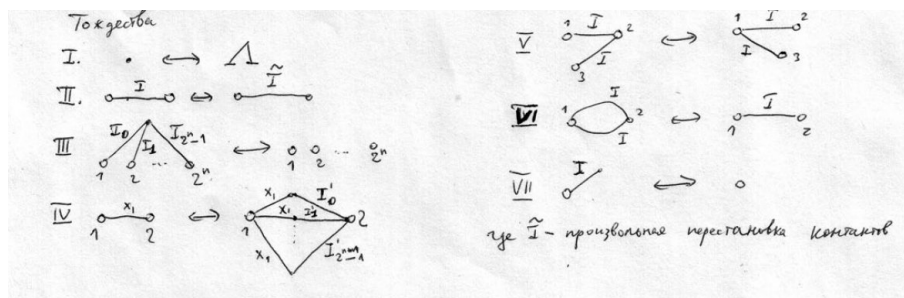 Тождества
I. Λ
II. I Ĩ
III I₀ I₁ I₂ⁿ₋₁
1 2 ... 2ⁿ 1 2 ... 2ⁿ
IV x₁ x₁ I'₀
1 2 1 x₁ I'₁ 2
x₁ I'₂ⁿ⁻¹₋₁
V 1 I 2 1 I 2
I 3 I 3
VI 1 I 2 1 I 2
I
VII I
где Ĩ - произвольная перестановка контактов